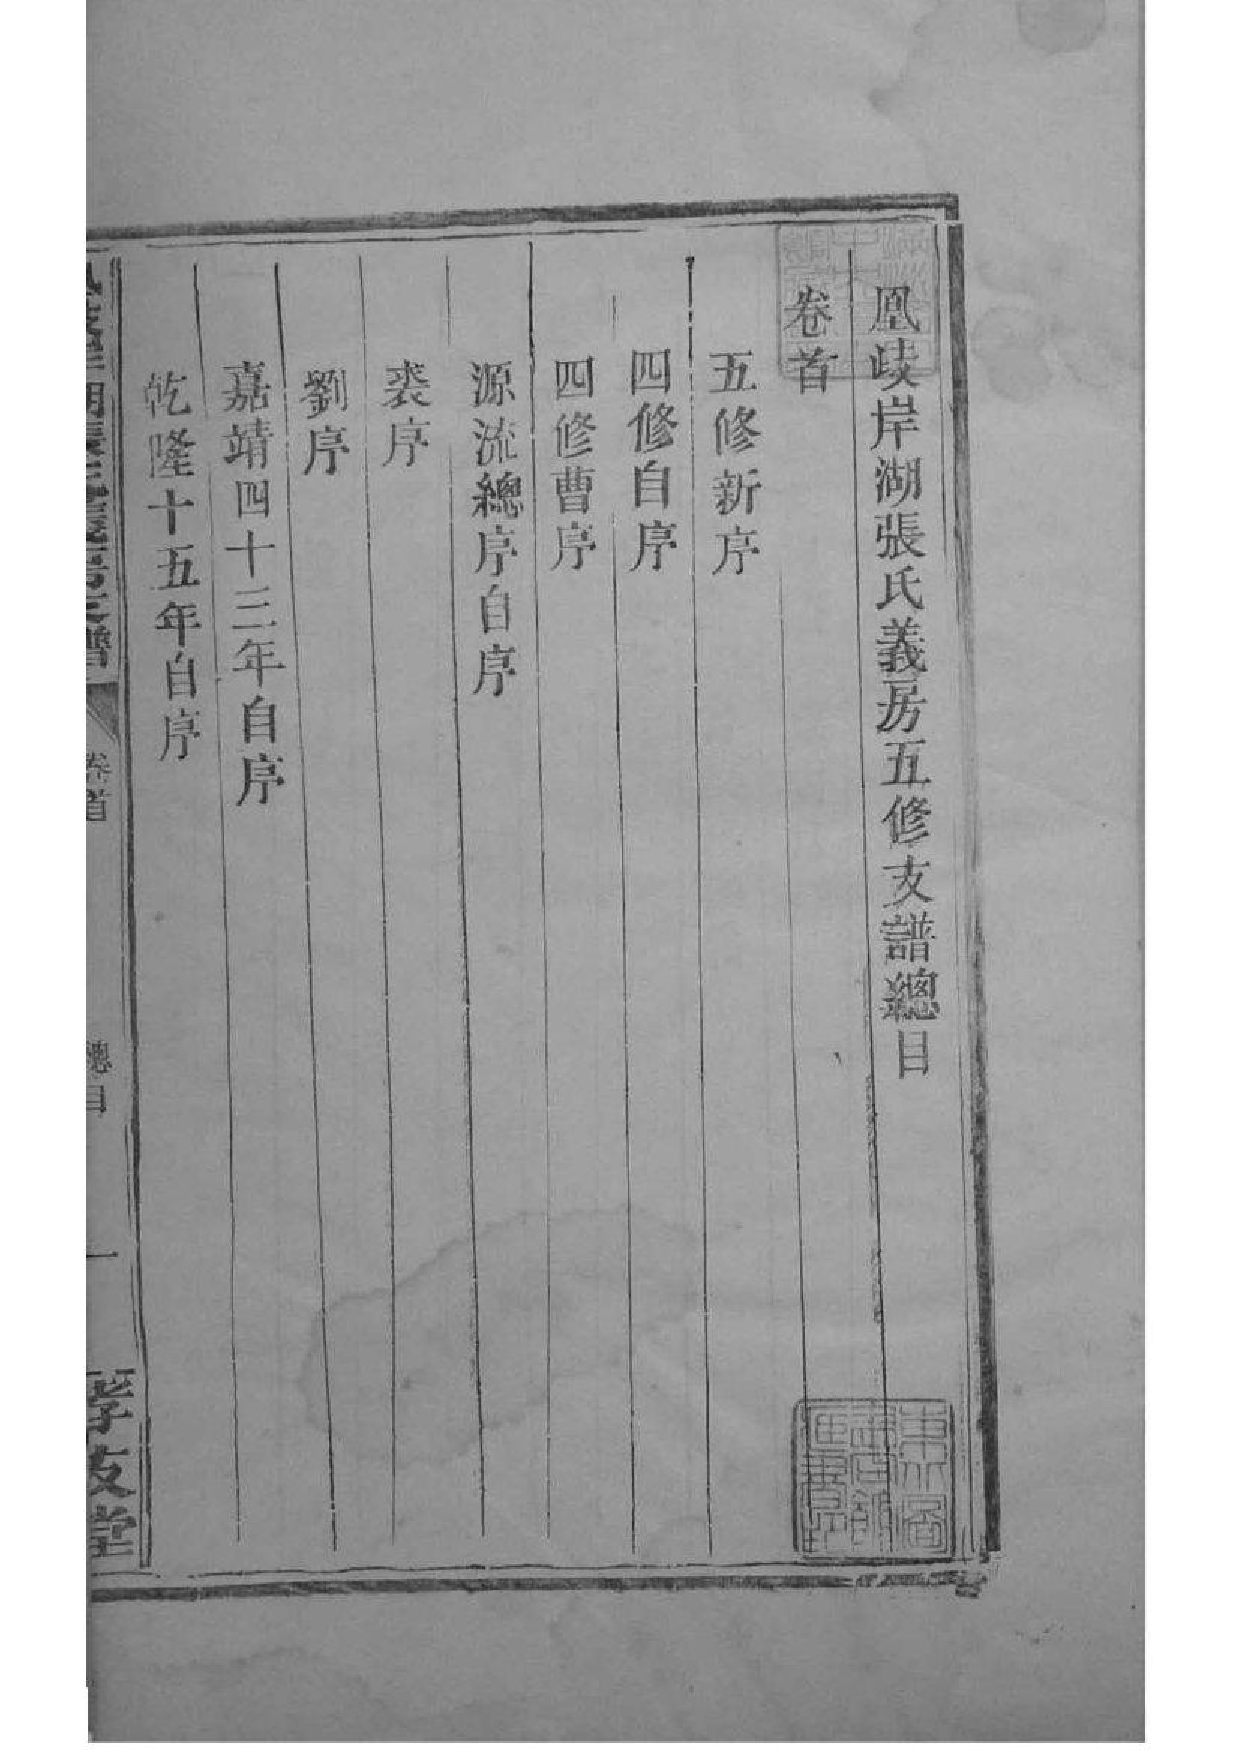 凰歧岸湖張氏義房五修支譜總目
卷首
五修新序
四修自序
四修曹序
源流總序自序
裘序
劉序
嘉靖四十三年自序
乾隆十五年自序
張氏義房支譜
卷首
總目
一
孝友堂